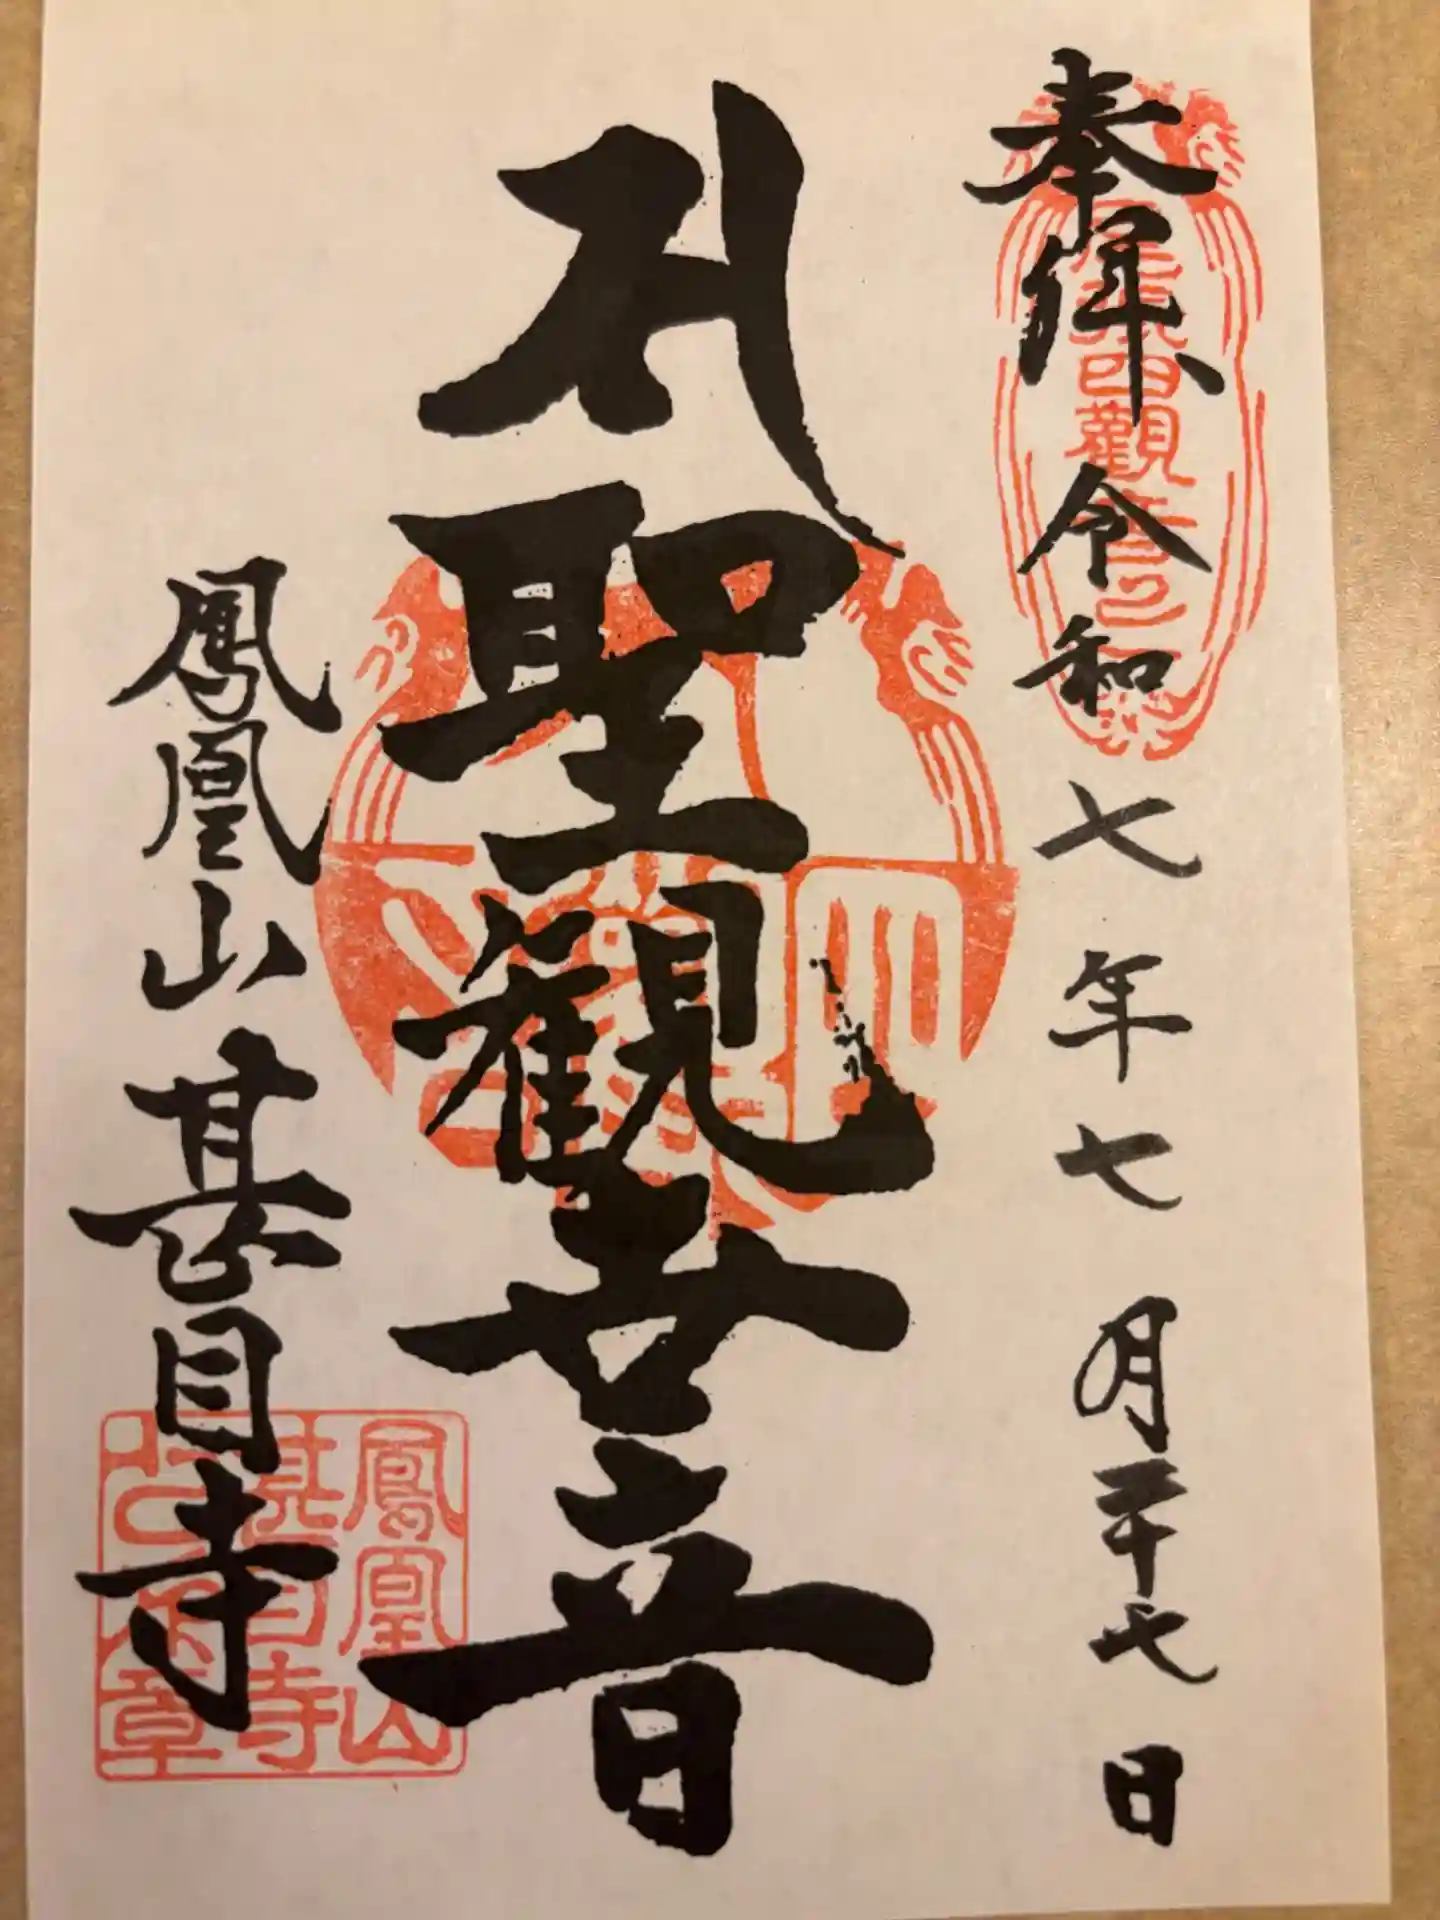 奉拝 令和七年七月二十七日
四觀音
聖観世音
鳳凰山 甚目寺
鳳凰山
甚目寺